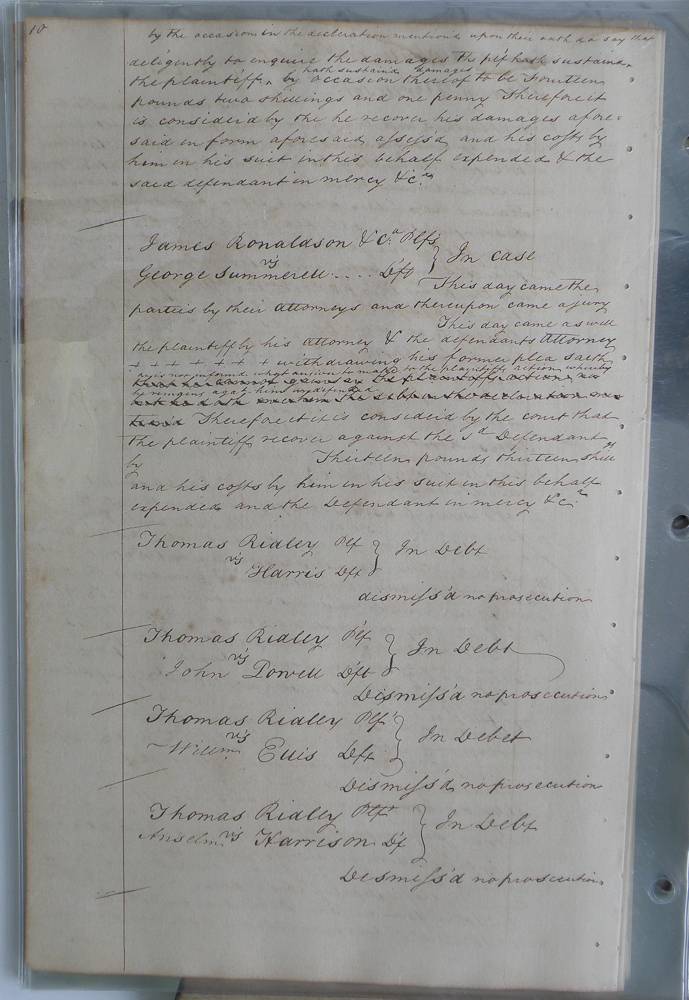 10
by the occasion in the decleration mentiond upon their oath do say that
deligently to enquire the damages the plf hath sustaind
hath sustaind damages
the plaintiff, by occasion thereof to be Fourteen
pounds two shillings and one penny Therefore it
is considerd by the he recover his damages afore=
said in form aforesaid assess'd and his costs by
him in his suit in this behalf expended & the
said defendant in mercy &c.
James Ronaldson & Ca. Plfs
vs In case
George Summerell .... Dft
This day came the
parties by their attorneys and thereupon came a jury
This day came as well
the plaintiff by his attorney & the defendants attorney
+ + + + + + + withdrawing his former plea saith
he is not informd what answer to make to the plaintiffs action whereby
he remains agst him undefended
Therefore it is considerd by the court that
the plaintiff recover against the sd Defendant
by Thirteen pounds thirteen shillgs
and his costs by him in his suit in this behalf
expended and the Defendant in mercy &c.
Thomas Ridley Plf
vs In Debt
Harris Dft
dismiss'd no prosecution
Thomas Ridley Plf
vs In Debt
John Powell Dft
Dismiss'd no prosecution
Thomas Ridley Plf
vs In Debet
Willm Ellis Dft
Dismiss'd no prosecution
Thomas Ridley Plf
vs In Debt
Anselm Harrison Df
Desmiss'd no prosecution